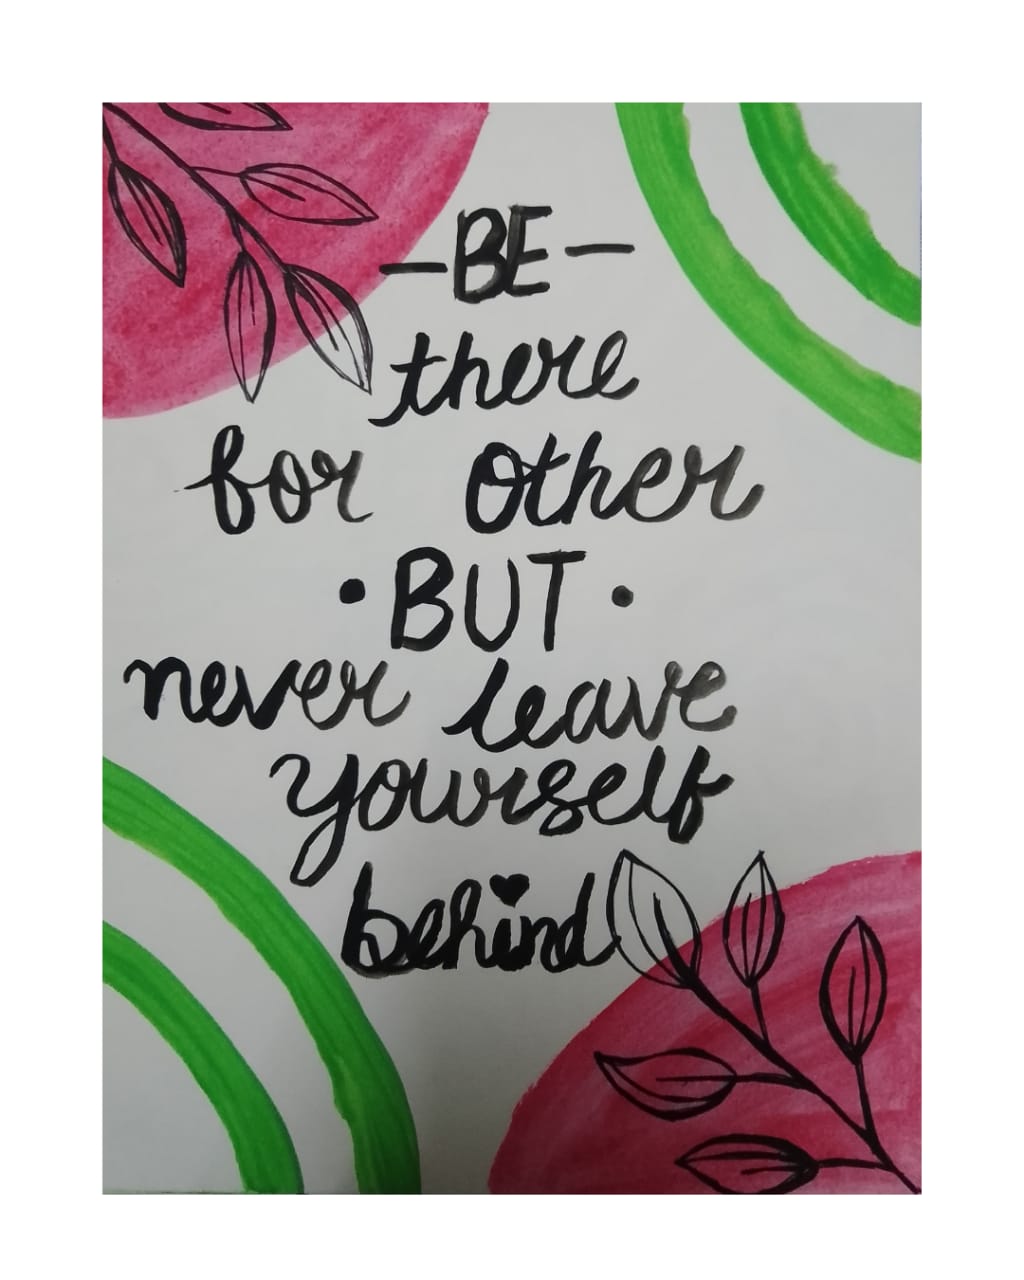 -BE-
there
for other
•BUT•
never leave
yourself
behind